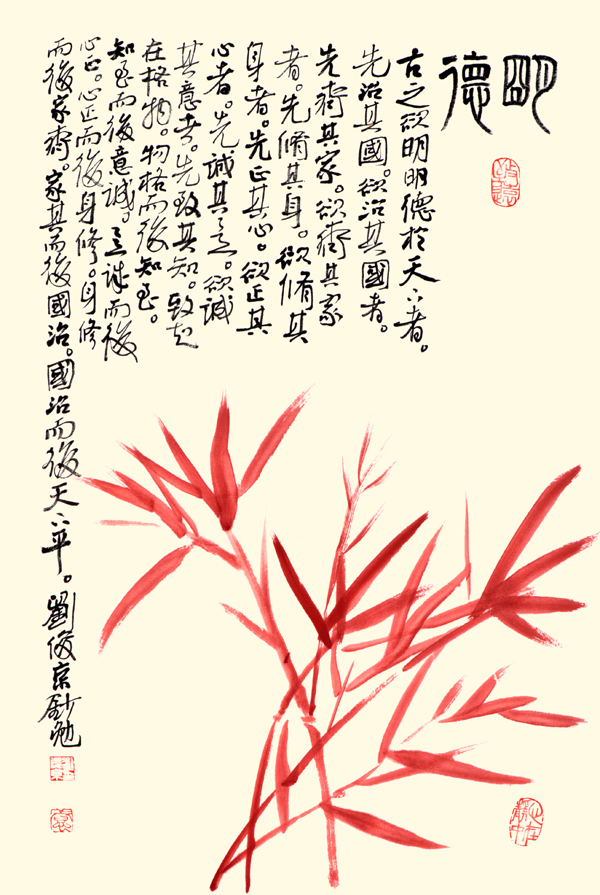 明德
古之欲明明德於天下者。
先治其國。欲治其國者。
先齊其家。欲齊其家
者。先脩其身。欲脩其
身者。先正其心。欲正其
心者。先誠其意。欲誠
其意者。先致其知。致知
在格物。物格而後知至。
知至而後意誠。意誠而後
心正。心正而後身修。身修
而後家齊。家其而後國治。國治而後天下平。劉俊京鈔勉